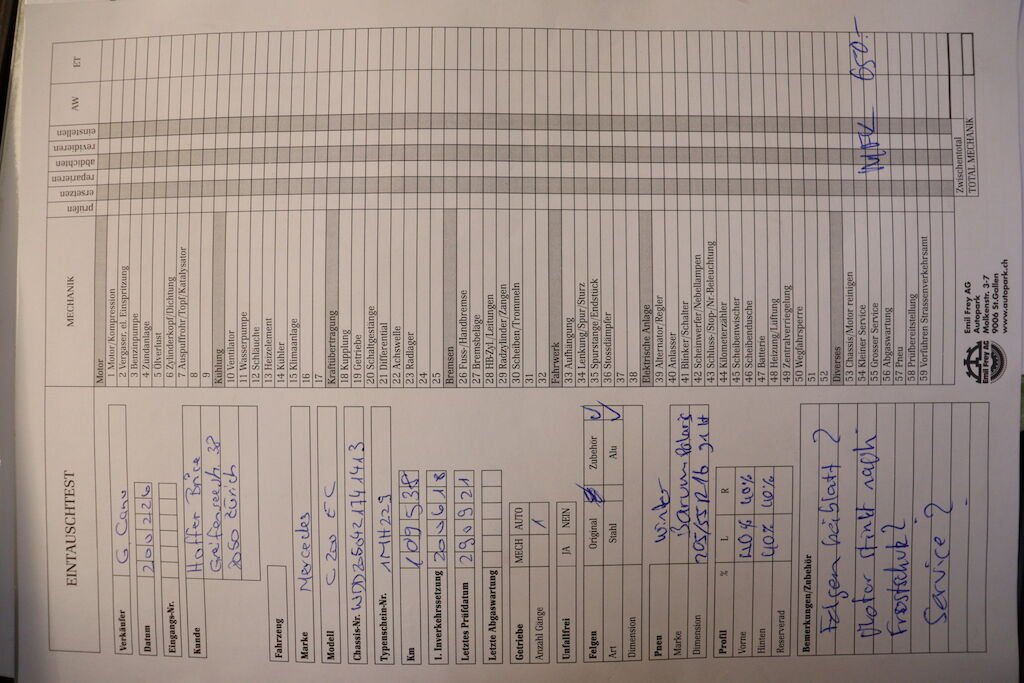 EINTAUSCHTEST
Verkäufer G. Cano
Datum 200226
Eingangs-Nr.
Kunde Hoffer Brice
Greifenseestr. 38
8050 Zürich
Fahrzeug
Marke Mercedes
Modell C 200 E C
Chassis-Nr.
Typenschein-Nr. 1MH229
Km 109538
1. Inverkehrssetzung 200618
Letztes Prüfdatum 290921
Letzte Abgaswartung
Getriebe MECH AUTO
Anzahl Gänge 1
Unfallfrei JA NEIN
Felgen Original Zubehör ✓
Art Stahl Alu ✓
Dimension
Pneu Winter
Marke Barum Polaris
Dimension 205/55 R16 91H
Profil % L R
Vorne 40% 40%
Hinten 40% 40%
Reserverad
Bemerkungen/Zubehör
Felgen beiblatt?
Motor stinkt nach
Frostschutz?
Service?
MECHANIK
prüfen
ersetzen
reparieren
abdichten
revidieren
einstellen
AW
ET
Motor
1 Motor/Kompression
2 Vergaser, el. Einspritzung
3 Benzinpumpe
4 Zündanlage
5 Ölverlust
6 Zylinderkopf/Dichtung
7 Auspuffrohr/Topf/Katalysator
8
9
Kühlung
10 Ventilator
11 Wasserpumpe
12 Schläuche
13 Heizelement
14 Kühler
15 Klimaanlage
16
17
Kraftübertragung
18 Kupplung
19 Getriebe
20 Schaltgestänge
21 Differential
22 Achswelle
23 Radlager
24
25
Bremsen
26 Fuss-/Handbremse
27 Bremsbeläge
28 HB-Zyl./Leitungen
29 Radzylinder/Zangen
30 Scheiben/Trommeln
31
32
Fahrwerk
33 Aufhängung
34 Lenkung/Spur/Sturz
35 Spurstange/Endstück
36 Stossdämpfer
37
38
Elektrische Anlage
39 Alternator/Regler
40 Anlasser
41 Blinker/Schalter
42 Scheinwerfer/Nebellampen
43 Schluss-/Stop-/Nr.-Beleuchtung
44 Kilometerzähler
45 Scheibenwischer
46 Scheibendusche
47 Batterie
48 Heizung/Lüftung
49 Zentralverriegelung
50 Wegfahrsperre
51
52
Diverses
53 Chassis/Motor reinigen
54 Kleiner Service
55 Grosser Service MFK 650.-
56 Abgaswartung
57 Pneu
58 Prüfbereitstellung
59 Vorführen Strassenverkehrsamt
Zwischentotal
TOTAL MECHANIK
Emil Frey AG
Emil Frey AG
Autopark
Molkenstr. 3-7
9006 St.Gallen
www.autopark.ch